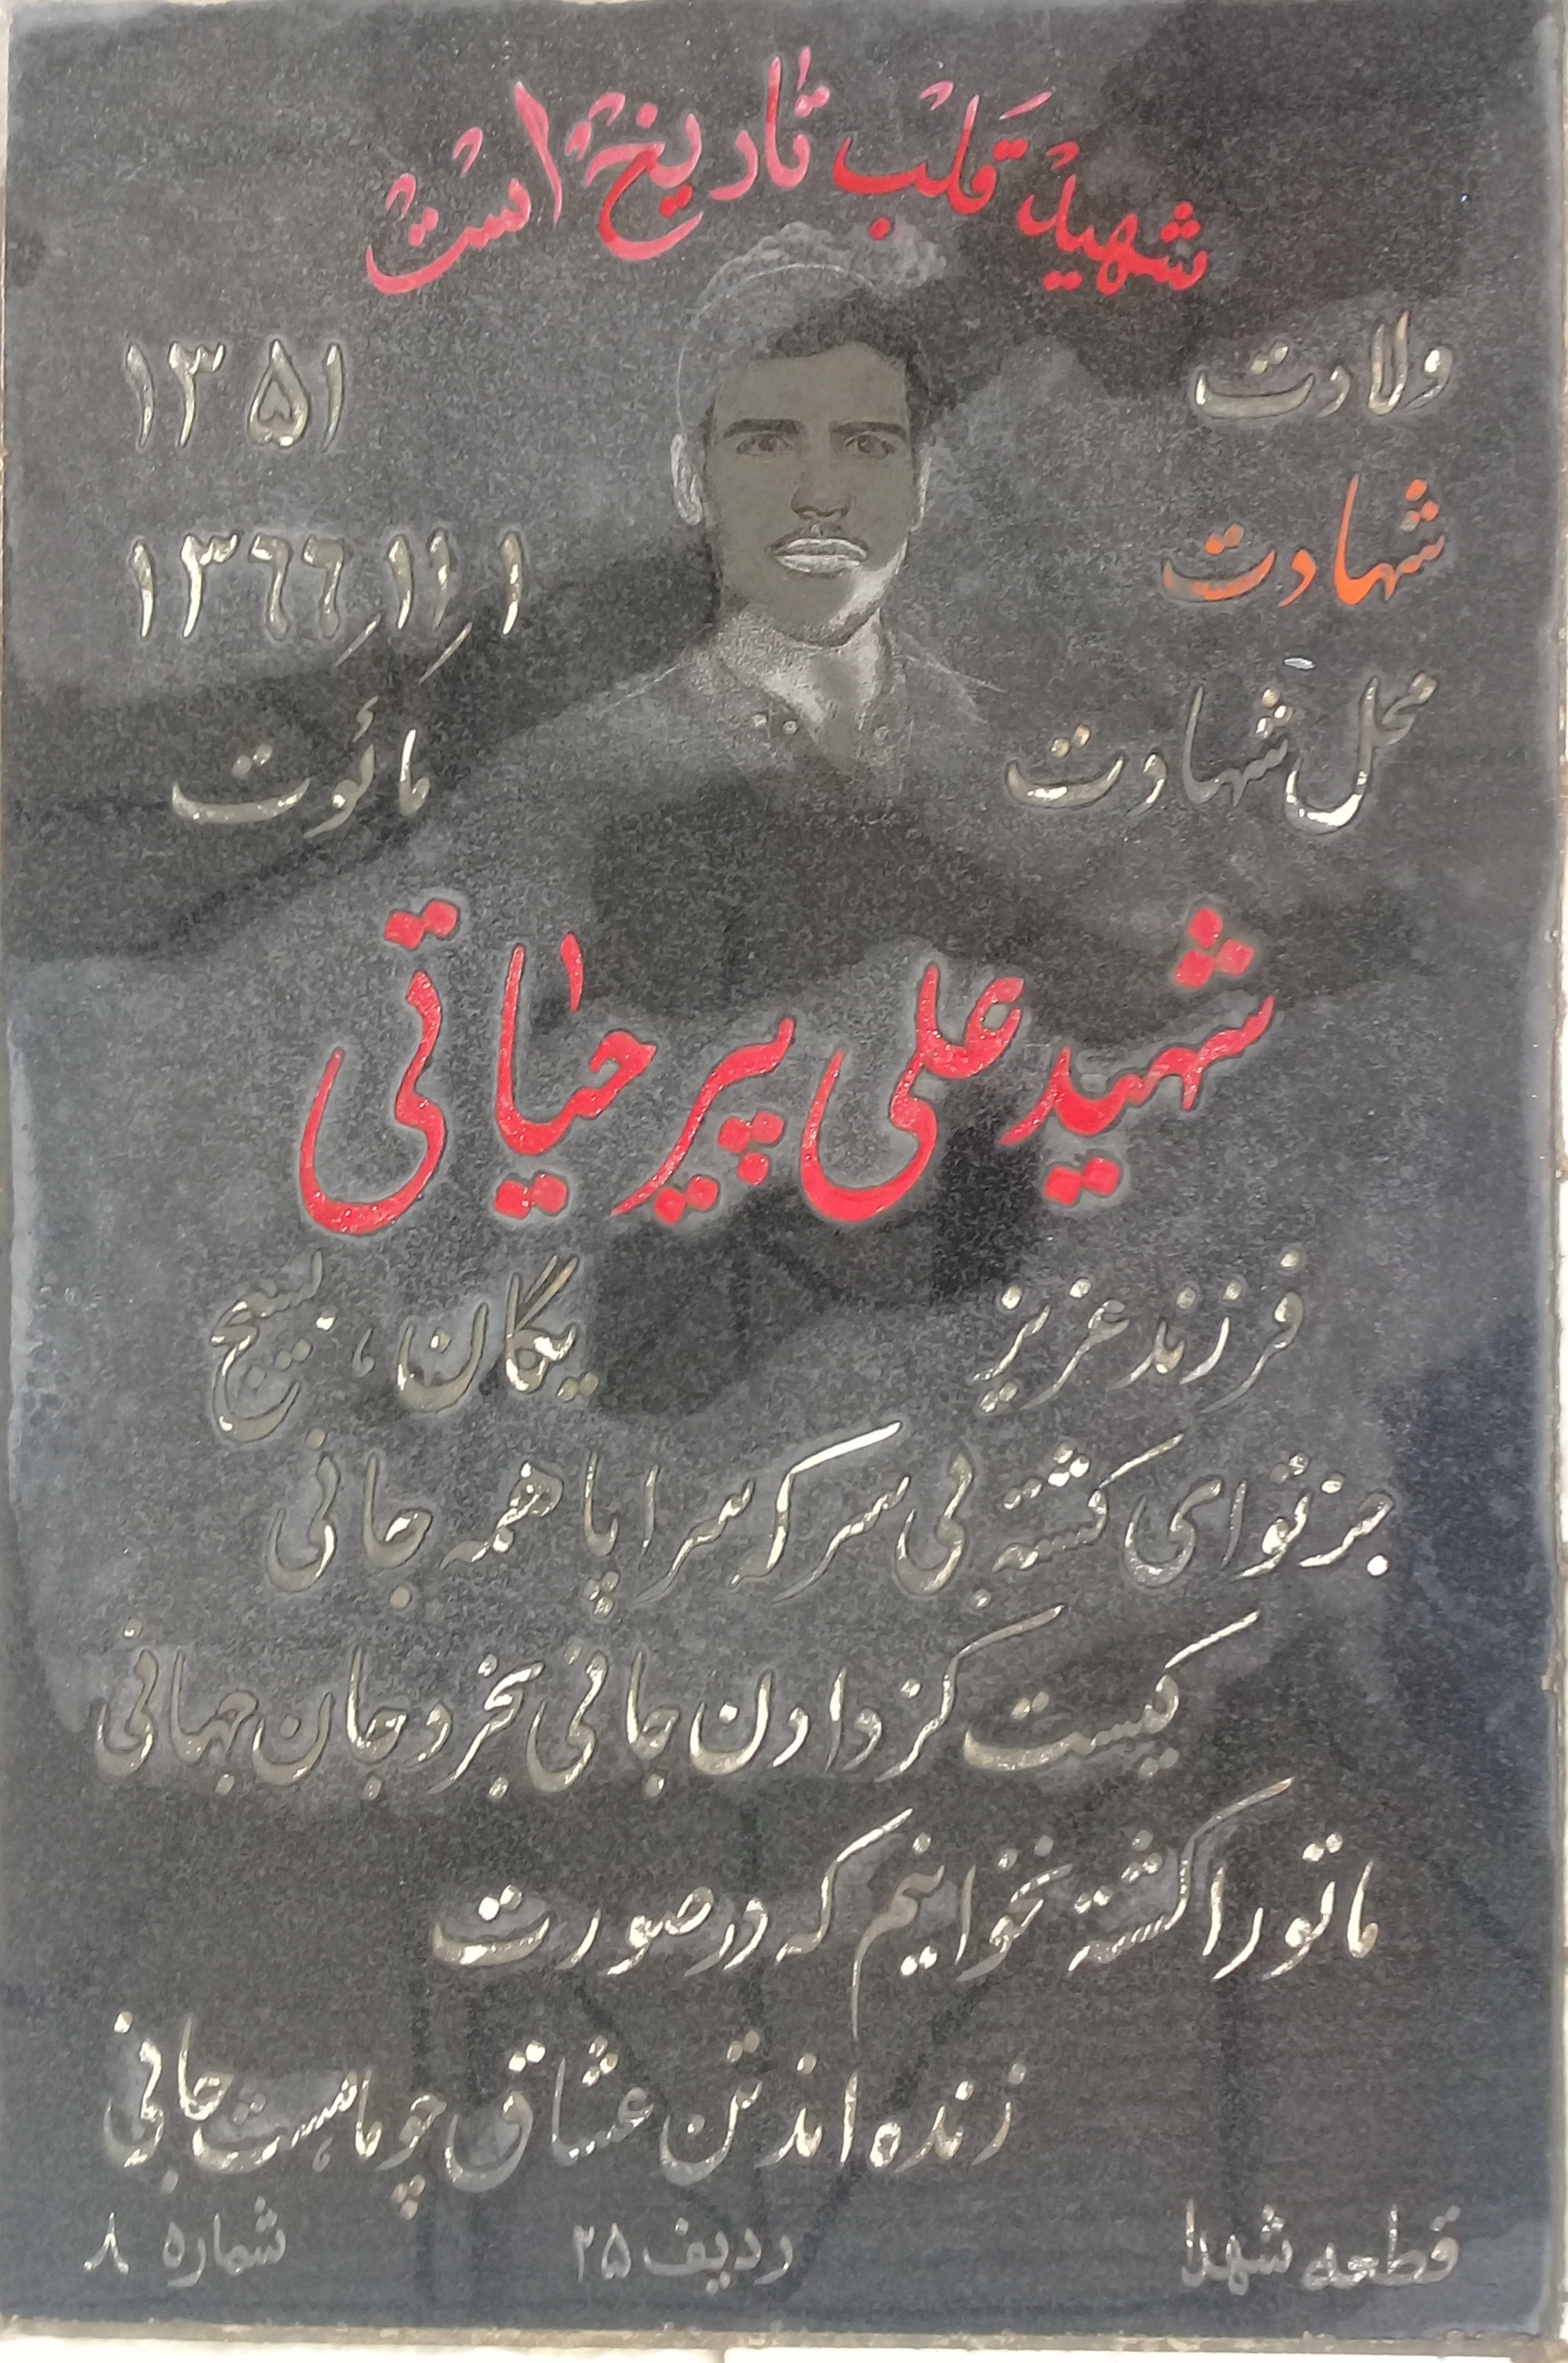 شهید قلب تاریخ است
ولادت ۱۳۵۱
شهادت ۱٫۱۱٫۱۳۶۶
محل شهادت مائوت
شهید علی پیر حیاتی
فرزند عزیز یگان، بسیج
جز تو ای کشته بی سر که سرا پا همه جانی
کیست کز دادن جانی بخرد جان جهانی
ما تو را کشته نخوانیم که در صورت
زنده اند تن عشاق چو ماهست جانی
قطعه شهدا ردیف ۲۵ شماره ۸